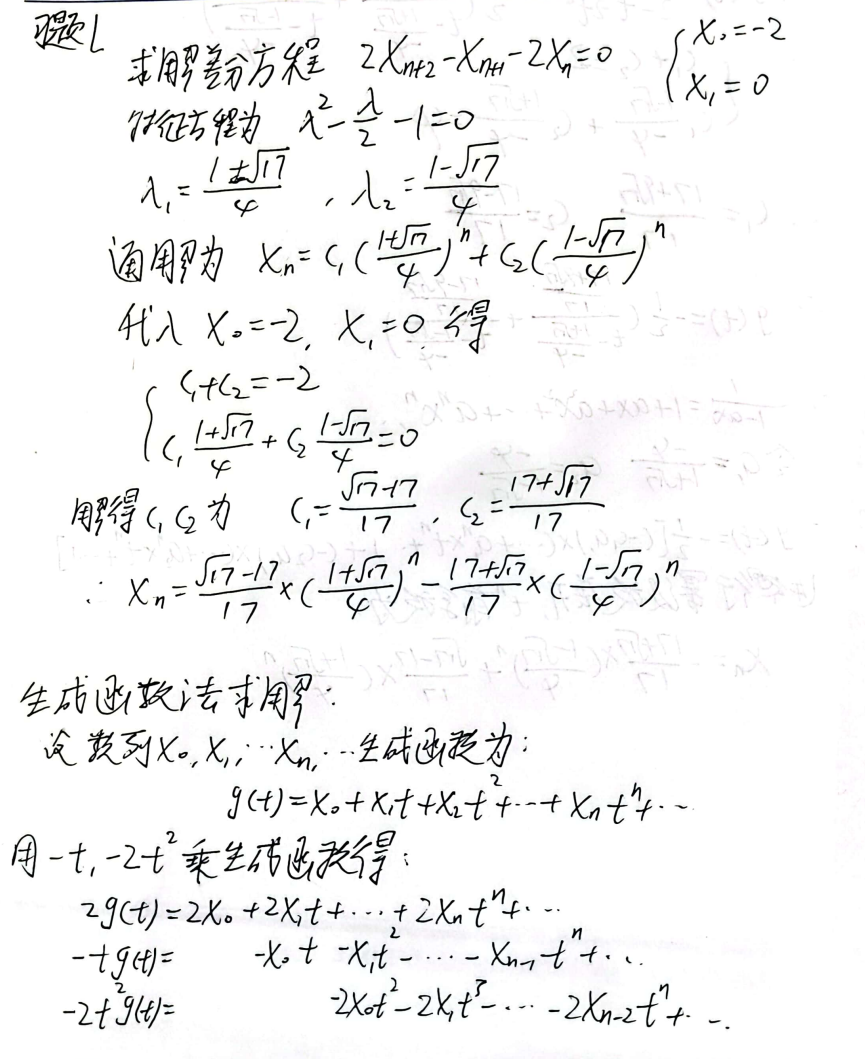 习题1
求解差分方程 2Xₙ₊₂-Xₙ₊₁-2Xₙ=0 { X₀=-2
X₁=0
特征方程为 λ²-λ/2-1=0
λ₁=(1±√17)/4 , λ₂=(1-√17)/4
通解为 Xₙ=C₁((1+√17)/4)ⁿ+C₂((1-√17)/4)ⁿ
代入 X₀=-2, X₁=0 得
{ C₁+C₂=-2
C₁(1+√17)/4+C₂(1-√17)/4=0
解得C₁C₂为 C₁=(√17-17)/17 , C₂=(17+√17)/17
∴ Xₙ=(√17-17)/17×((1+√17)/4)ⁿ-(17+√17)/17×((1-√17)/4)ⁿ
生成函数法求解:
设数列X₀,X₁,…Xₙ,…生成函数为:
g(t)=X₀+X₁t+X₂t²+…+Xₙtⁿ+…
用-t,-2t²乘生成函数得:
2g(t)=2X₀+2X₁t+…+2Xₙtⁿ+…
-tg(t)= -X₀t-X₁t²-…-Xₙ₋₁tⁿ+…
-2t²g(t)= -2X₀t²-2X₁t³-…-2Xₙ₋₂tⁿ+…